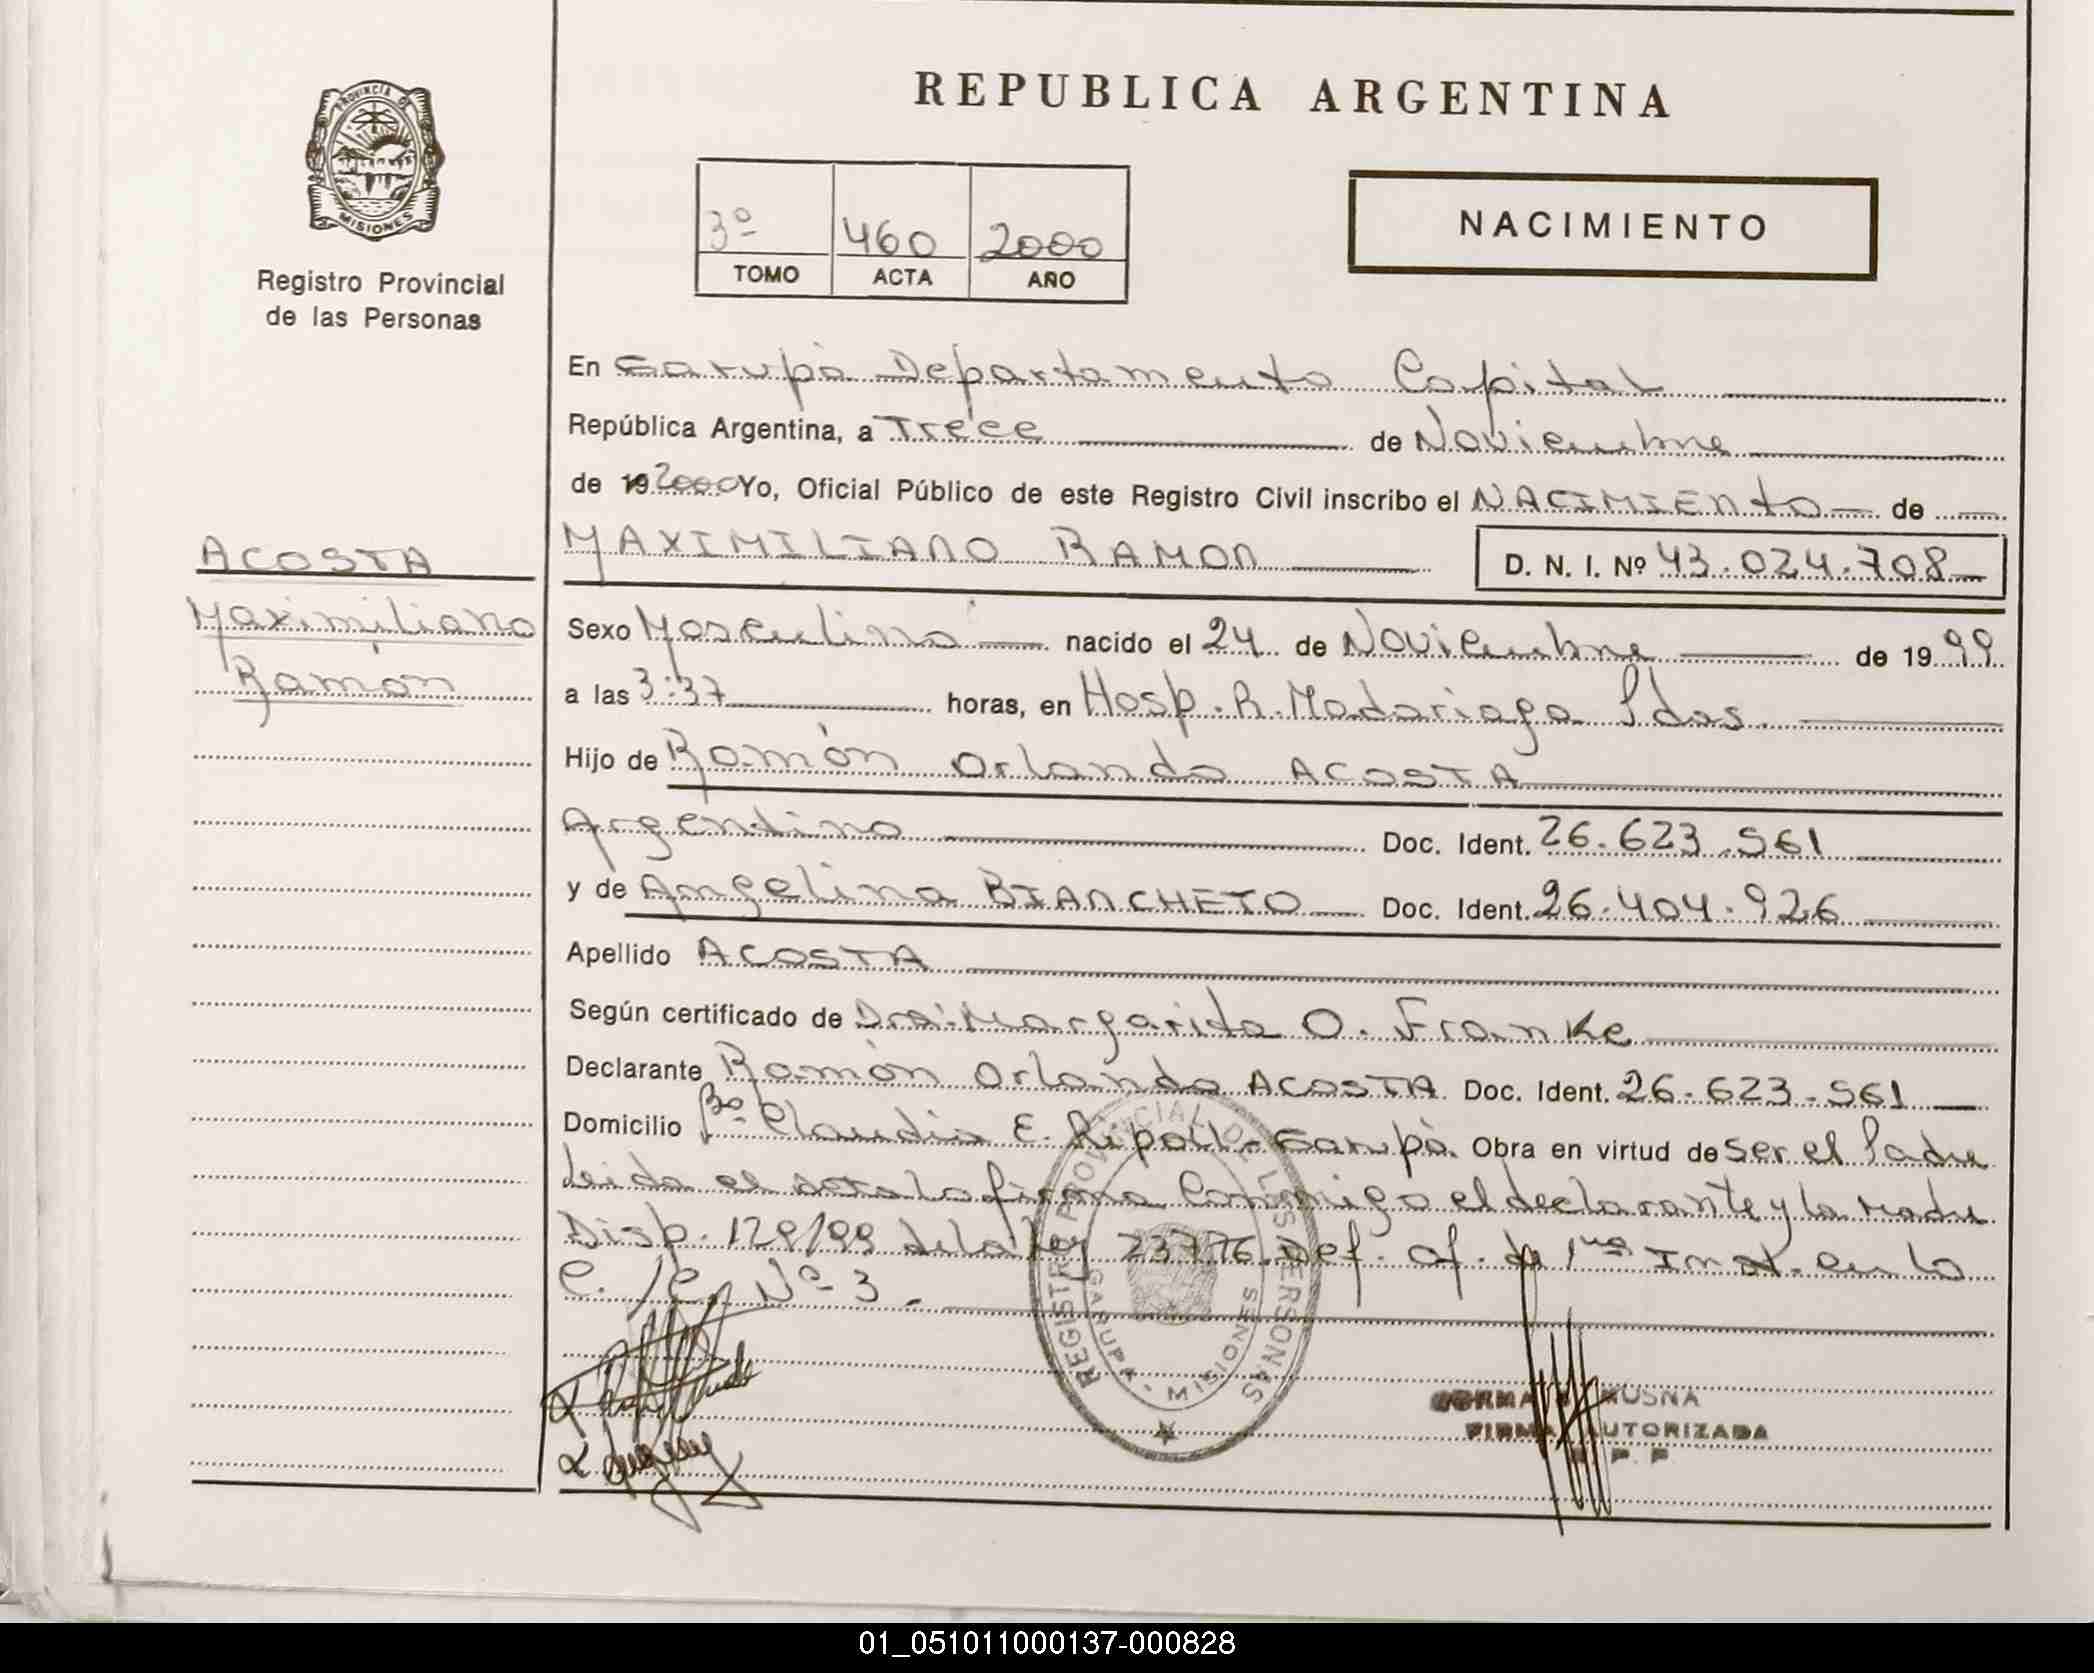 REPUBLICA ARGENTINA
PROVINCIA DE
MISIONES
Registro Provincial
de las Personas
3º 460 2000
TOMO ACTA AÑO
NACIMIENTO
En Garupà Departamento Capital
República Argentina, a Trece de Noviembre
de 19 2000 Yo, Oficial Público de este Registro Civil inscribo el NACIMIENTO de
MAXIMILIANO RAMON D. N. I. Nº 43.024.708
ACOSTA
Maximiliano
Ramón
Sexo Masculino nacido el 24 de Noviembre de 1999
a las 3:37 horas, en Hosp. R. Madariaga Pdas.
Hijo de Ramón Orlando ACOSTA
Argentino Doc. Ident. 26.623.561
y de Angelina BIANCHETO Doc. Ident. 26.404.926
Apellido ACOSTA
Según certificado de Dra: Margarita O. Franke
Declarante Ramón Orlando ACOSTA Doc. Ident. 26.623.561
Domicilio Bº Claudia E. Ripoll - Garupà. Obra en virtud de ser el Padre
Leida el acta la firma Conmigo el declarante y la Madre
Disp. 129/99 de la ley 23776. Def. Of. de 1ra Inst. en lo
C. / C. Nº 3.
REGISTRO PROVINCIAL DE LAS PERSONAS
GARUPA - MISIONES
MUSNA
FIRMA AUTORIZADA
R. P. P
01_051011000137-000828